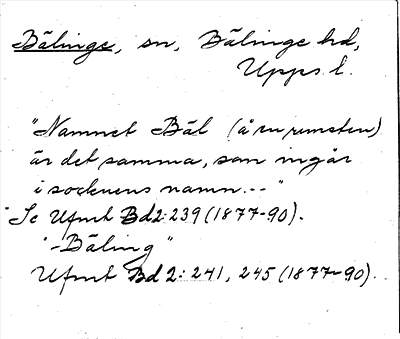 Bälinge, sn, Bälinge hd,
Upps. l.
"Namnet Bäl (å runsten)
är det samma, som ingår
i socknens namn..."
Se Ufmt Bd 2:239 (1877-90).
"-Bäling"
Ufmt Bd 2: 241, 245 (1877-90).